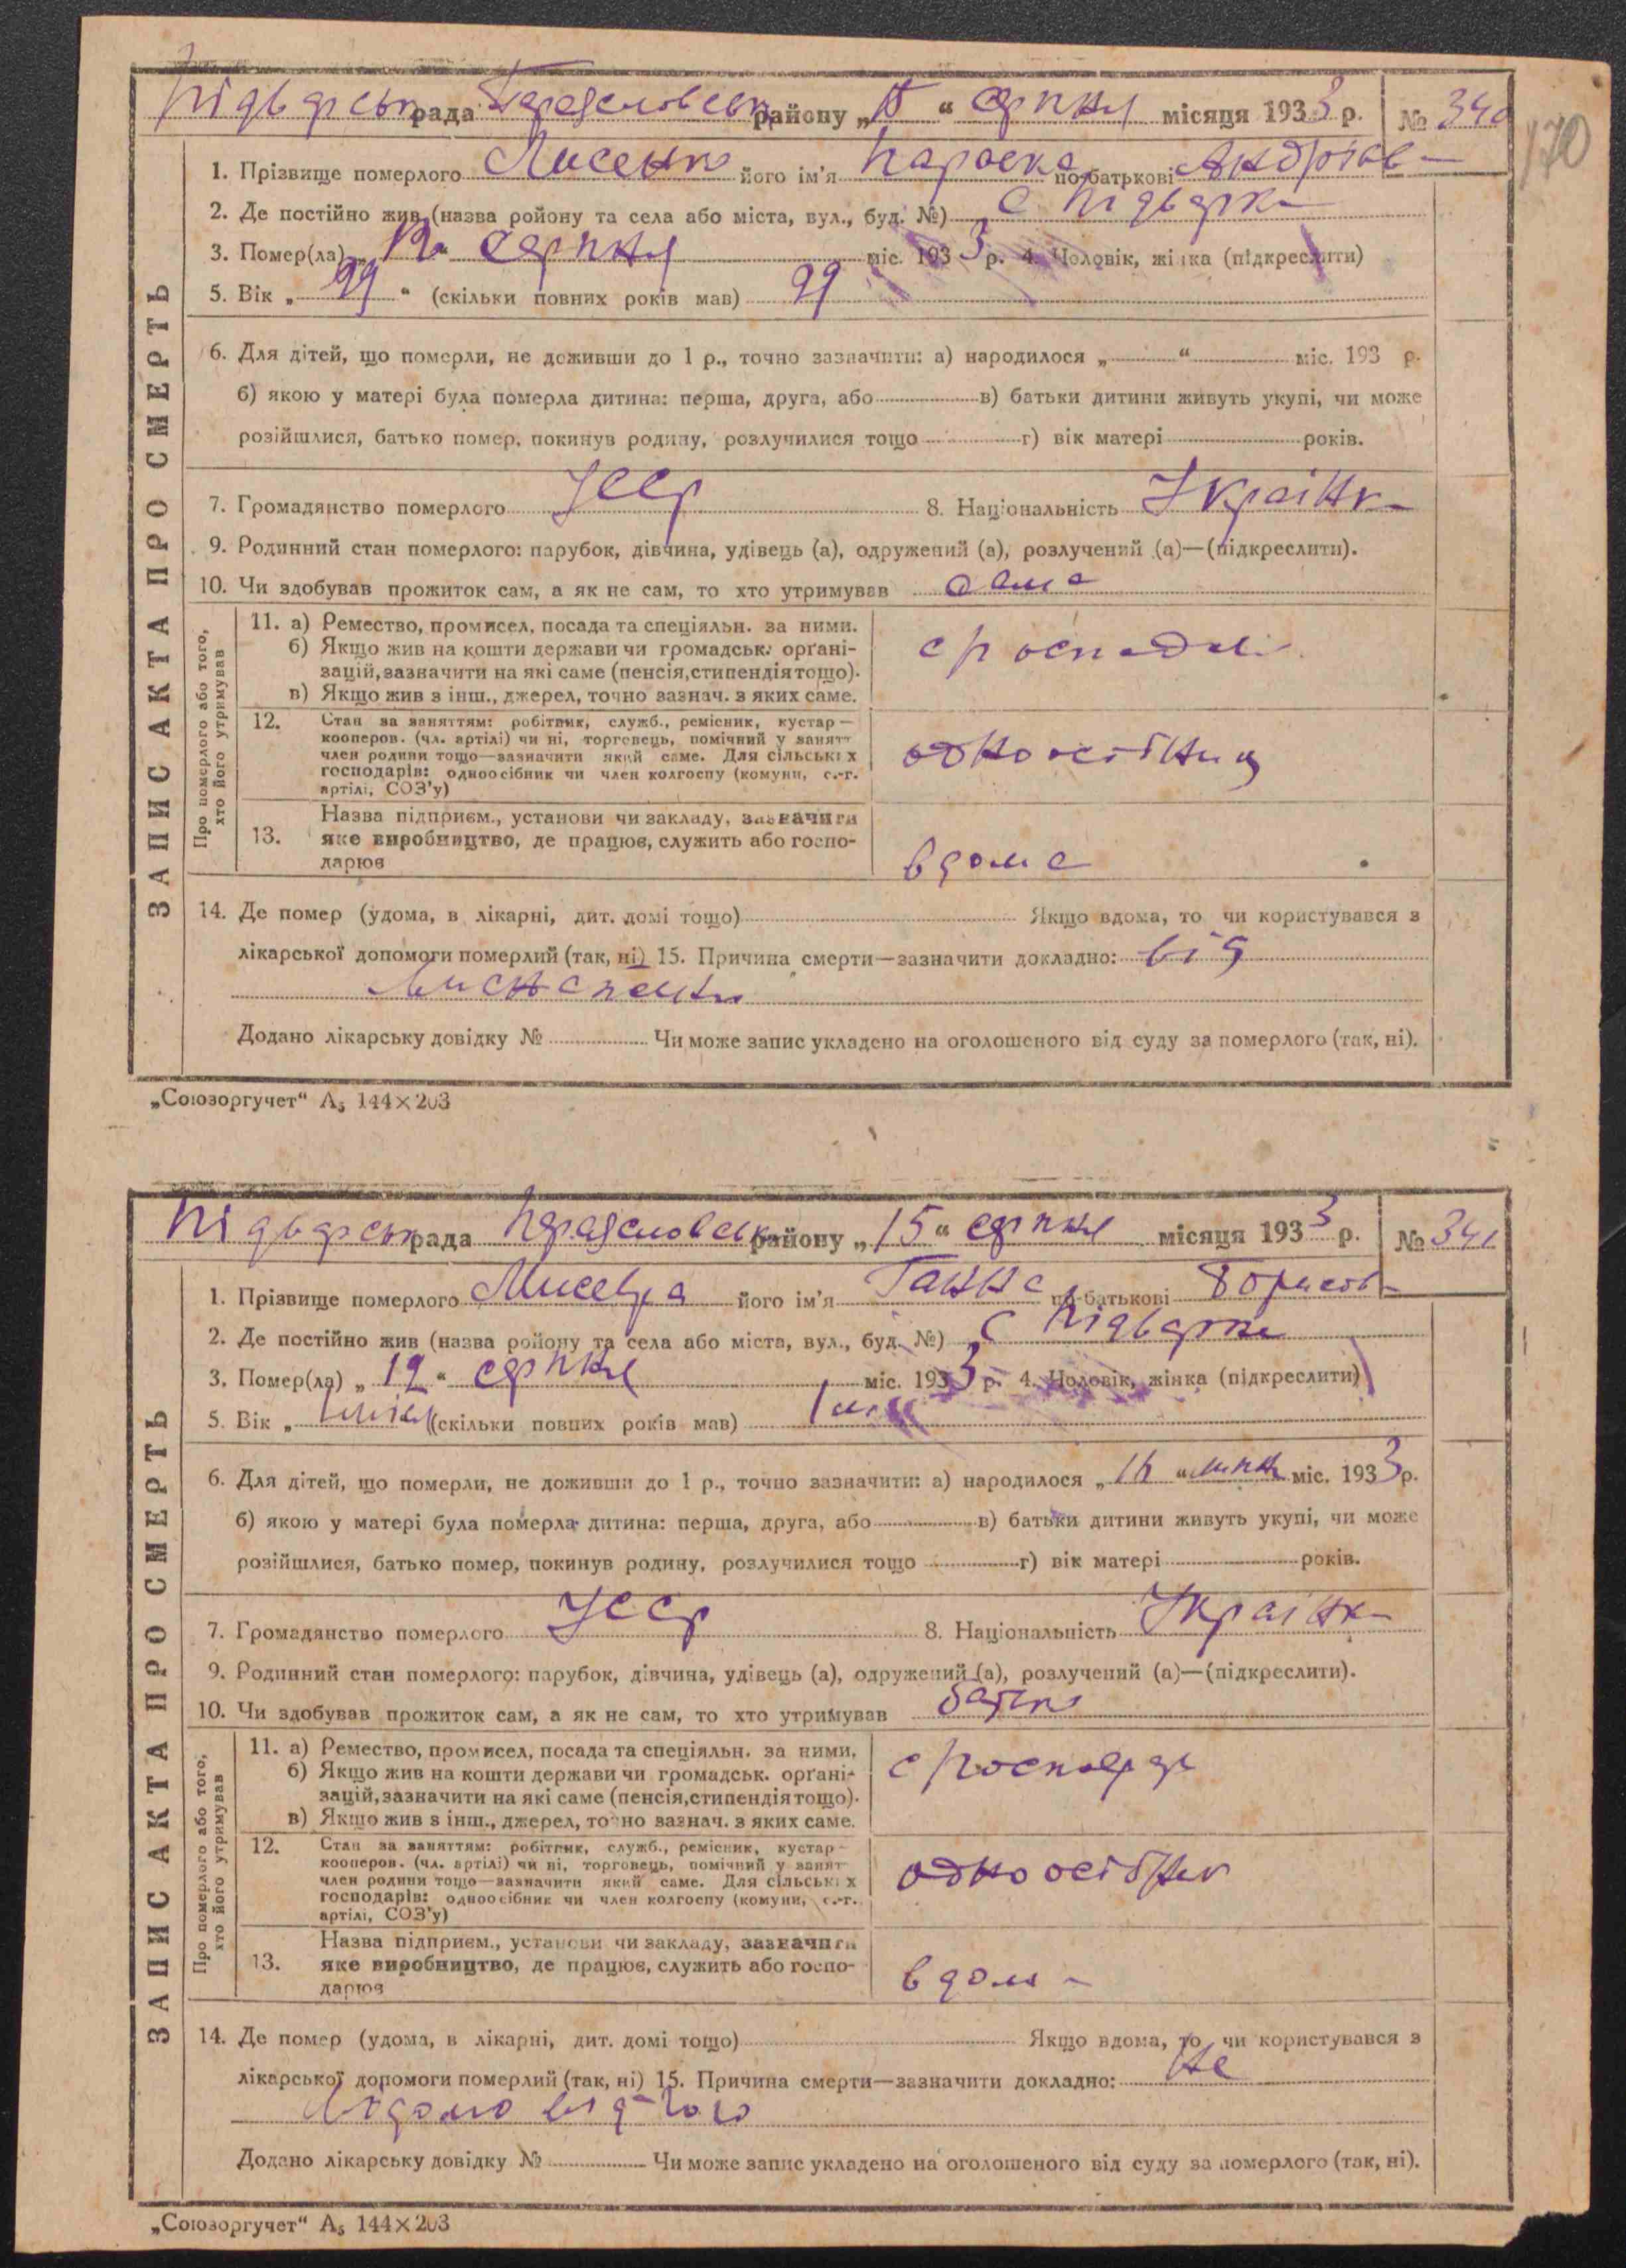 Підварськ рада Переяславськ району „15“ серпня місяця 1933 р. № 340
170
1. Прізвище померлого Лисенко його ім'я Параска по-батькові Андріїв
2. Де постійно жив (назва ройону та села або міста, вул., буд. №) с Підварки
3. Помер(ла) „12“ серпня міс. 1933 р. 4. Чоловік, жінка (підкреслити)
5. Вік „99“ (скільки повних років мав) 99
6. Для дітей, що померли, не доживши до 1 р., точно зазначити: а) народилося „ “ міс. 193 р.
б) якою у матері була померла дитина: перша, друга, або в) батьки дитини живуть укупі, чи може
розійшлися, батько помер, покинув родину, розлучилися тощо г) вік матері років.
7. Громадянство померлого УССР 8. Національність Українк
9. Родинний стан померлого: парубок, дівчина, удівець (а), одружений (а), розлучений (а)—(підкреслити).
10. Чи здобував прожиток сам, а як не сам, то хто утримував сама
ЗАПИС АКТА ПРО СМЕРТЬ
Про померлого або того, хто його утримував
11. а) Ремество, промисел, посада та спеціяльн. за ними.
б) Якщо жив на кошти держави чи громадськ. орґані-
зацій, зазначити на які саме (пенсія, стипендія тощо).
в) Якщо жив з інш., джерел, точно зазнач. з яких саме.
12. Стан за заняттям: робітник, служб., ремісник, кустар—
кооперов. (чл. артілі) чи ні, торговець, помічний у занятт
член родини тощо—зазначити який саме. Для сільських
господарів: одноосібник чи член колгоспу (комуни, с.-г.
артілі, СОЗ'у)
одноосібниц
13. Назва підприєм., установи чи закладу, зазначити
яке виробництво, де працює, служить або госпо-
дарює
вдома
14. Де помер (удома, в лікарні, дит. домі тощо) Якщо вдома, то чи користувався з
лікарської допомоги померлий (так, ні) 15. Причина смерти—зазначити докладно: від
Додано лікарську довідку № Чи може запис укладено на оголошеного від суду за померлого (так, ні).
„Союзоргучет“ А5 144×203
Підварськ рада Переяславськ району „15“ серпня місяця 1933 р. № 341
1. Прізвище померлого його ім'я Ганна по-батькові Борисов
2. Де постійно жив (назва ройону та села або міста, вул., буд. №) с Підварки
3. Помер(ла) „12“ серпня міс. 1933 р. 4. Чоловік, жінка (підкреслити)
5. Вік „1 місяц (скільки повних років мав) 1 міс
6. Для дітей, що померли, не доживши до 1 р., точно зазначити: а) народилося „ “ липн міс. 1933 р.
б) якою у матері була померла дитина: перша, друга, або в) батьки дитини живуть укупі, чи може
розійшлися, батько помер, покинув родину, розлучилися тощо г) вік матері років.
7. Громадянство померлого УССР 8. Національність Українк
9. Родинний стан померлого: парубок, дівчина, удівець (а), одружений (а), розлучений (а)—(підкреслити).
10. Чи здобував прожиток сам, а як не сам, то хто утримував батько
ЗАПИС АКТА ПРО СМЕРТЬ
Про померлого або того, хто його утримував
11. а) Ремество, промисел, посада та спеціяльн. за ними.
б) Якщо жив на кошти держави чи громадськ. орґані-
зацій, зазначити на які саме (пенсія, стипендія тощо).
в) Якщо жив з інш., джерел, точно зазнач. з яких саме.
12. Стан за заняттям: робітник, служб., ремісник, кустар—
кооперов. (чл. артілі) чи ні, торговець, помічний у занят
член родини тощо—зазначити який саме. Для сільських
господарів: одноосібник чи член колгоспу (комуни, с.-г.
артілі, СОЗ'у)
одноосібник
13. Назва підприєм., установи чи закладу, зазначити
яке виробництво, де працює, служить або госпо-
дарює
вдома
14. Де помер (удома, в лікарні, дит. домі тощо) Якщо вдома, то чи користувався з
лікарської допомоги померлий (так, ні) 15. Причина смерти—зазначити докладно: не
відомо від чого
Додано лікарську довідку № Чи може запис укладено на оголошеного від суду за померлого (так, ні).
„Союзоргучет“ А5 144×203